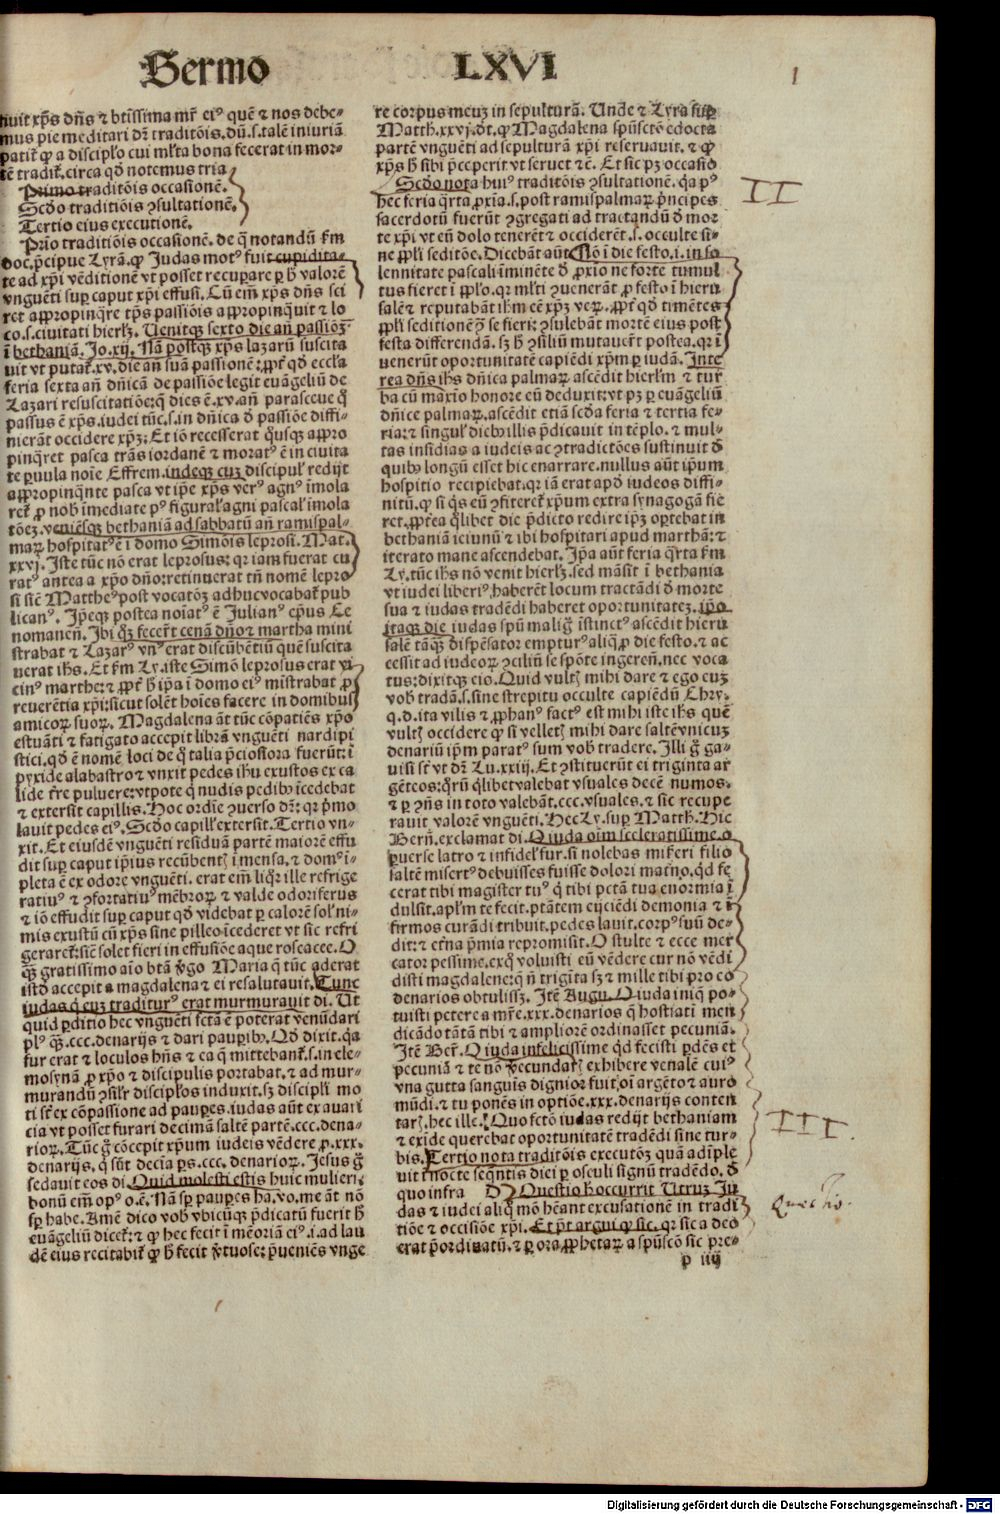 Sermo LXVI
1
nuit xp̄s dn̄s ⁊ btīssima mr̄ eiꝰ quē ⁊ nos debe-
mus pie meditari dr̄ traditōis. dū .s. talē iniuriā
patit᷑ ꝙ a discipl̓o cui ml̓ta bona fecerat in mor-
tē tradit᷑. circa qd̄ notemus tria
Primo traditōis occasionē.
Scd̄o traditiōis ꝯsultationē.
Tertio eius executionē.
Prio traditiōis occasionē. de q̄ notandū ẜm
doc. p̄cipue Lyrā. ꝙ Judas motꝰ fuit cupidita-
te ad xp̄i vēditionē vt posset recuꝑare ꝑ h̄ valorē
vnguēti suꝑ caput xp̄i effusi. Cū em̄ xp̄s dn̄s sci
ret appropinq̄re tp̄s passiōis appropinq̄uit ⁊ lo
co .s. ciuitati hierlꝫ. Uenitqꝫ sexto die an̄ passiōꝫ
ī bethaniā. Jo. xij. Nā postqꝫ xp̄s lazarū suscita
uit vt putat᷑ .xv. die an̄ suā passionē: ꝓpt᷑ qd̄ eccl̓a
feria sexta an̄ dn̄icā de passiōe legit euāgeliū de
Lazari resuscitatiōe: q̄ dies ē .xv. an̄ parasceue q̄
passus ē xp̄s. iudei tūc .s. in dn̄ica d̄ passiōe diffi-
nierāt occidere xp̄ꝫ: Et iō recesserat q̄usqꝫ appro
pinq̄ret pasca trās iordanē ⁊ moratꝰ ē in ciuita
te ꝑuula noīe Effrem. indeqꝫ cuꝫ discipul̓ redijt
appropinq̄nte pasca vt ip̄e xp̄s verꝰ agnꝰ īmola
ret᷑ ꝓ nob̄ īmediate pꝰ figural̓ agni pascal̓ īmola
tōeꝫ. veniēsqꝫ bethaniā ad sabbatū an̄ ramispal-
maꝝ hospitatꝰ ē ī domo Simōis leprosi. Mat.
xxvj. Iste tūc nō erat leprosus: qr iam fuerat cu
ratꝰ antea a xp̄o dn̄o: retinuerat tn̄ nomē lepro
si sic̄ Mattheꝰ post vocatōꝫ adhuc vocabat᷑ pub
licanꝰ. Ip̄eqꝫ postea noīatꝰ ē Julianꝰ ep̄us Ce
nomanen̄. Ibi q̄ꝫ fecer̄t cenā dn̄o ⁊ martha mini
strabat ⁊ Lazarꝰ vnꝰ erat discūbētiū quē suscita
uerat ih̄s. Et ẜm Ly. iste Simō leprosus erat vi
cinꝰ marthe: ⁊ ꝓpt᷑ h̄ ip̄a ī domo eiꝰ mīstrabat ꝓ
reuerētia xp̄i: sicut solēt hoīes facere in domibus
amicoꝝ suoꝝ. Magdalena āt tūc cōpatiēs xp̄o
estuāti ⁊ fatigato accepit librā vnguēti nardi pi
stici. qd̄ ē nomē loci de q̄ talia p̄ciosiora fuerūt: ī
pyxide alabastro ⁊ vnxit pedes ih̄u exustos ex ca
lide t̄re puluere: vtpote q̄ nudis pedibꝰ īcedebat
⁊ extersit capillis. Hoc ordīe ꝯuerso dr̄: qr p̄mo
lauit pedes eiꝰ. Scd̄o capill̓ extersit. Tertio vn-
xit. Et eiusdē vnguēti residuā partē maiorē effu
dit suꝑ caput ip̄ius recūbentꝭ ī mensa. ⁊ domꝰ ī-
pleta ē ex odore vnguēti. erat em̄ liq̄r ille refrige
ratiuꝰ ⁊ ꝯfortatiuꝰ mēbroꝝ ⁊ valde odoriferus
⁊ iō effudit suꝑ caput qd̄ videbat ꝑ calorē sol̓ ni-
mis exustū cū xp̄s sine pilleo īcederet vt sic refri
geraret᷑: sic̄ solet fieri in effusiōe aque rosacee. O
qꝫ gratissimo aīo btā v̓go Maria q̄ tūc aderat
istd̄ accepit a magdalena ⁊ ei resalutauit. Tunc
iudas q̄ eum traditurꝰ erat murmurauit di. Ut
quid ꝑditio hec vnguēti fctā ē poterat venūdari
plꝰ qꝫ .ccc. denarijs ⁊ dari pauꝑibꝰ. Qd̄ dixit. q̄a
fur erat ⁊ loculos hn̄s ⁊ ea q̄ mittebant᷑ .s. in ele-
mosynā ꝓ xp̄o ⁊ discipulis portabat. ⁊ ad mur-
murandū ꝯsil̓r discipl̓os induxit. sꝫ discipl̓i mo
ti sūt ex cōpassione ad pauꝑes. iudas aūt ex auari
cia vt posset furari decimā saltē partē .ccc. dena-
rioꝝ. Tūc g̊ cōcepit xp̄um iudeis vēdere ꝓ .xxx.
denarijs, q̄ sūt decīa ꝑs .ccc. denarioꝝ. Jesus g̊
sedauit eos di. Quid molesti estis huic mulieri.
bonū em̄ opꝰ o. ē. Nā sꝑ pauꝑes ha. vo. me āt nō
sꝑ habe. Amē dico vob̄ vbicūqꝫ p̄dicatū fuerit h̄
euāgeliū dicet᷑: ⁊ ꝙ hec fecit ī mēoriā eiꝰ .i. ad lau
dē eius recitabit᷑ ꝙ h̄ fecit v̓tuose: p̄ueniēs vnge
re corpus meuꝫ in sepulturā. Unde ⁊ Lyra suꝑ
Matth. xxvj. dt. ꝙ Magdalena spūsctō edocta
partē vnguēti ad sepulturā xp̄i reseruauit. ⁊ ꝙ
xp̄s h̄ sibi p̄ceperit vt seruet ⁊ē. Et sic pꝫ occasio
Scd̄o nota huiꝰ traditōis ꝯsultationē. q̄a pꝰ
hec feria q̄rta ꝓxīa .s. post ramispalmaꝝ p̄ncipes
sacerdotū fuerūt ꝯgregati ad tractandū d̄ mor
te xp̄i vt eū dolo tenerēt ⁊ occiderēt .s. occulte si-
ne ppl̓i seditōe. Dicebāt aūt Nō ī die festo .i. in so
lennitate pascali īminēte d̄ ꝓxīo ne forte tumul
tus fieret ī ppl̓o. qr ml̓ti ꝯuenerāt ꝓ festo ī hieru
salē ⁊ reputabāt ih̄m eē xp̄ꝫ veꝝ. ꝓpt᷑ qd̄ timētes
ppl̓i seditionē ꝯ̄ se fieri: ꝯsulebāt mortē eius post
festa differendā. sꝫ h̄ ꝯsiliū mutauer̄t postea. qr ī
uenerūt oportunitatē capiēdi xp̄m ꝑ iudā. Inte
rea dn̄s ih̄s dn̄ica palmaꝝ ascēdit hierlm̄ ⁊ tur
ba cū maxīo honore eū deduxit: vt pꝫ ꝑ euāgeliū
dn̄ice palmaꝝ. ascēdit etiā scd̄a feria ⁊ tertia fe-
ria: ⁊ singul̓ diebꝰ illis p̄dicauit in tēplo. ⁊ mul-
tas insidias a iudeis ac ꝯtradictōes sustinuit d̄
quibꝰ longū esset hic enarrare. nullus aūt ip̄um
hospitio recipiebat. qr iā erat apd̄ iudeos diffi-
nitū. ꝙ si q̄s eū ꝯfiteret᷑ xp̄um extra synagogā fie
ret. ꝓpt̄ea q̄libet die p̄dicto redire ip̄ꝫ oportebat in
bethaniā ieiunū ⁊ ibi hospitari apud marthā: ⁊
iterato mane ascendebat. Ip̄a aūt feria q̄rta ẜm
Ly. tūc ih̄s nō venit hierlꝫ. sed māsit ī bethania
vt iudei liberiꝰ haberēt locum tractādi d̄ morte
sua ⁊ iudas tradēdi haberet oportunitateꝫ. ip̄o
itaqꝫ die iudas spū malig̊ īstinctꝰ ascēdit hieru
salē tāqꝫ dispēsator empturꝰ aliq̄ ꝓ die festo. ⁊ ac
cessit ad iudeoꝝ ꝯciliū se spōte ingerēs. nec voca
tus: dixitqꝫ eis. Quid vultꝭ mihi dare ⁊ ego euꝫ
vob̄ tradā .s. sine strepitu occulte capiēdū Chry.
q. d. ita vilis ⁊ ꝓphanꝰ factꝰ est mihi iste ih̄s quē
vultꝭ occidere ꝙ si velletꝭ mihi dare saltē vnicuꝫ
denariū ip̄m paratꝰ sum vob̄ tradere. Illi g̊ ga-
uisi st̄ vt dr̄ Lu. xxiij. Et ꝯstituerūt ei triginta ar
gēteos: q̄rū q̄libet valebat vsuales decē numos.
⁊ ꝑ ꝯn̄s in toto valebāt .ccc. vsuales. ⁊ sic recupe
rauit valorē vnguēti. Hec Ly. suꝑ Matth. Hic
Bern̄. exclamat di. O iuda oīm sceleratissime. o
ꝑuerse latro ⁊ infidel̓ fur. si nolebas mis̄eri filio
saltē misertꝰ debuisses fuisse dolori mat᷑no. qd̄ fe
cerat tibi magister tuꝰ q̄ tibi pctā tua enormia ī
dulsit. apl̓m te fecit. ptātem eijciēdi demonia ⁊ ī
firmos curādi tribuit. pedes lauit. corpꝰ suū de-
dit: ⁊ et᷑na p̄mia repromisit. O stulte ⁊ ecce mer
cator pessime. exq̄ voluisti eū vēdere cur nō vēdi
disti magdalene: q̄ n̄ trigīta sꝫ ⁊ mille tibi pro eo
denarios obtulissꝫ. Itē Augu. O iuda iniq̄ po-
tuisti petere a mr̄e .xxx. denarios q̄ hostiati men
dicādo tātā tibi ⁊ ampliorē ordinasset pecuniā.
Itē Ber̄. O iuda infelicissime qd̄ fecisti ꝑdēs et
pecuniā ⁊ te nō v̓ecundatꝭ exhibere venalē cuiꝰ
vna gutta sanguīs dignior fuit, oī argēto ⁊ auro
mūdi. ⁊ tu ponēs in optiōe .xxx. denarijs conten
tarꝭ. hec ille. Quo fctō iudas redijt bethaniam
⁊ exīde querebat oportunitatē tradēdi sine tur-
bis. Tertio nota traditōis executōꝫ quā adīple
uit ī nocte seq̄ntis diei ꝑ osculi signū tradēdo. d̄
quo infra D Questio h̄ occurrit Utruꝫ Ju
das ⁊ iudei aliq̄ mō hēant excusationē in tradi
tiōe ⁊ occisiōe xp̄i. Et p̄t argui ꝙ sic. qr sic a deo
erat p̄ordinatū. ⁊ ꝑ ora ꝓphetaꝝ a spūscō sic pre-
p iiij
II
III.
Questio.
Digitalisierung gefördert durch die Deutsche Forschungsgemeinschaft - DFG